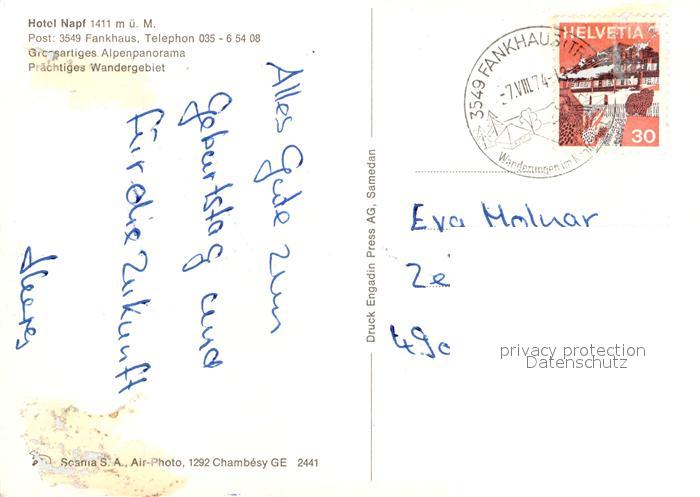 Hotel Napf 1411 m ü. M.
Post: 3549 Fankhaus, Telephon 035 - 6 54 08
Grossartiges Alpenpanorama
Prächtiges Wandergebiet
Alles Gute zum
Geburtstag und
für die Zukunft
Druck Engadin Press AG, Samedan
Scania S. A., Air-Photo, 1292 Chambésy GE 2441
3549 FANKHAUS (TR
-7.VIII.74-
Wanderungen im
HELVETIA
30
Eva Molnar
Ze
490
privacy protection
Datenschutz